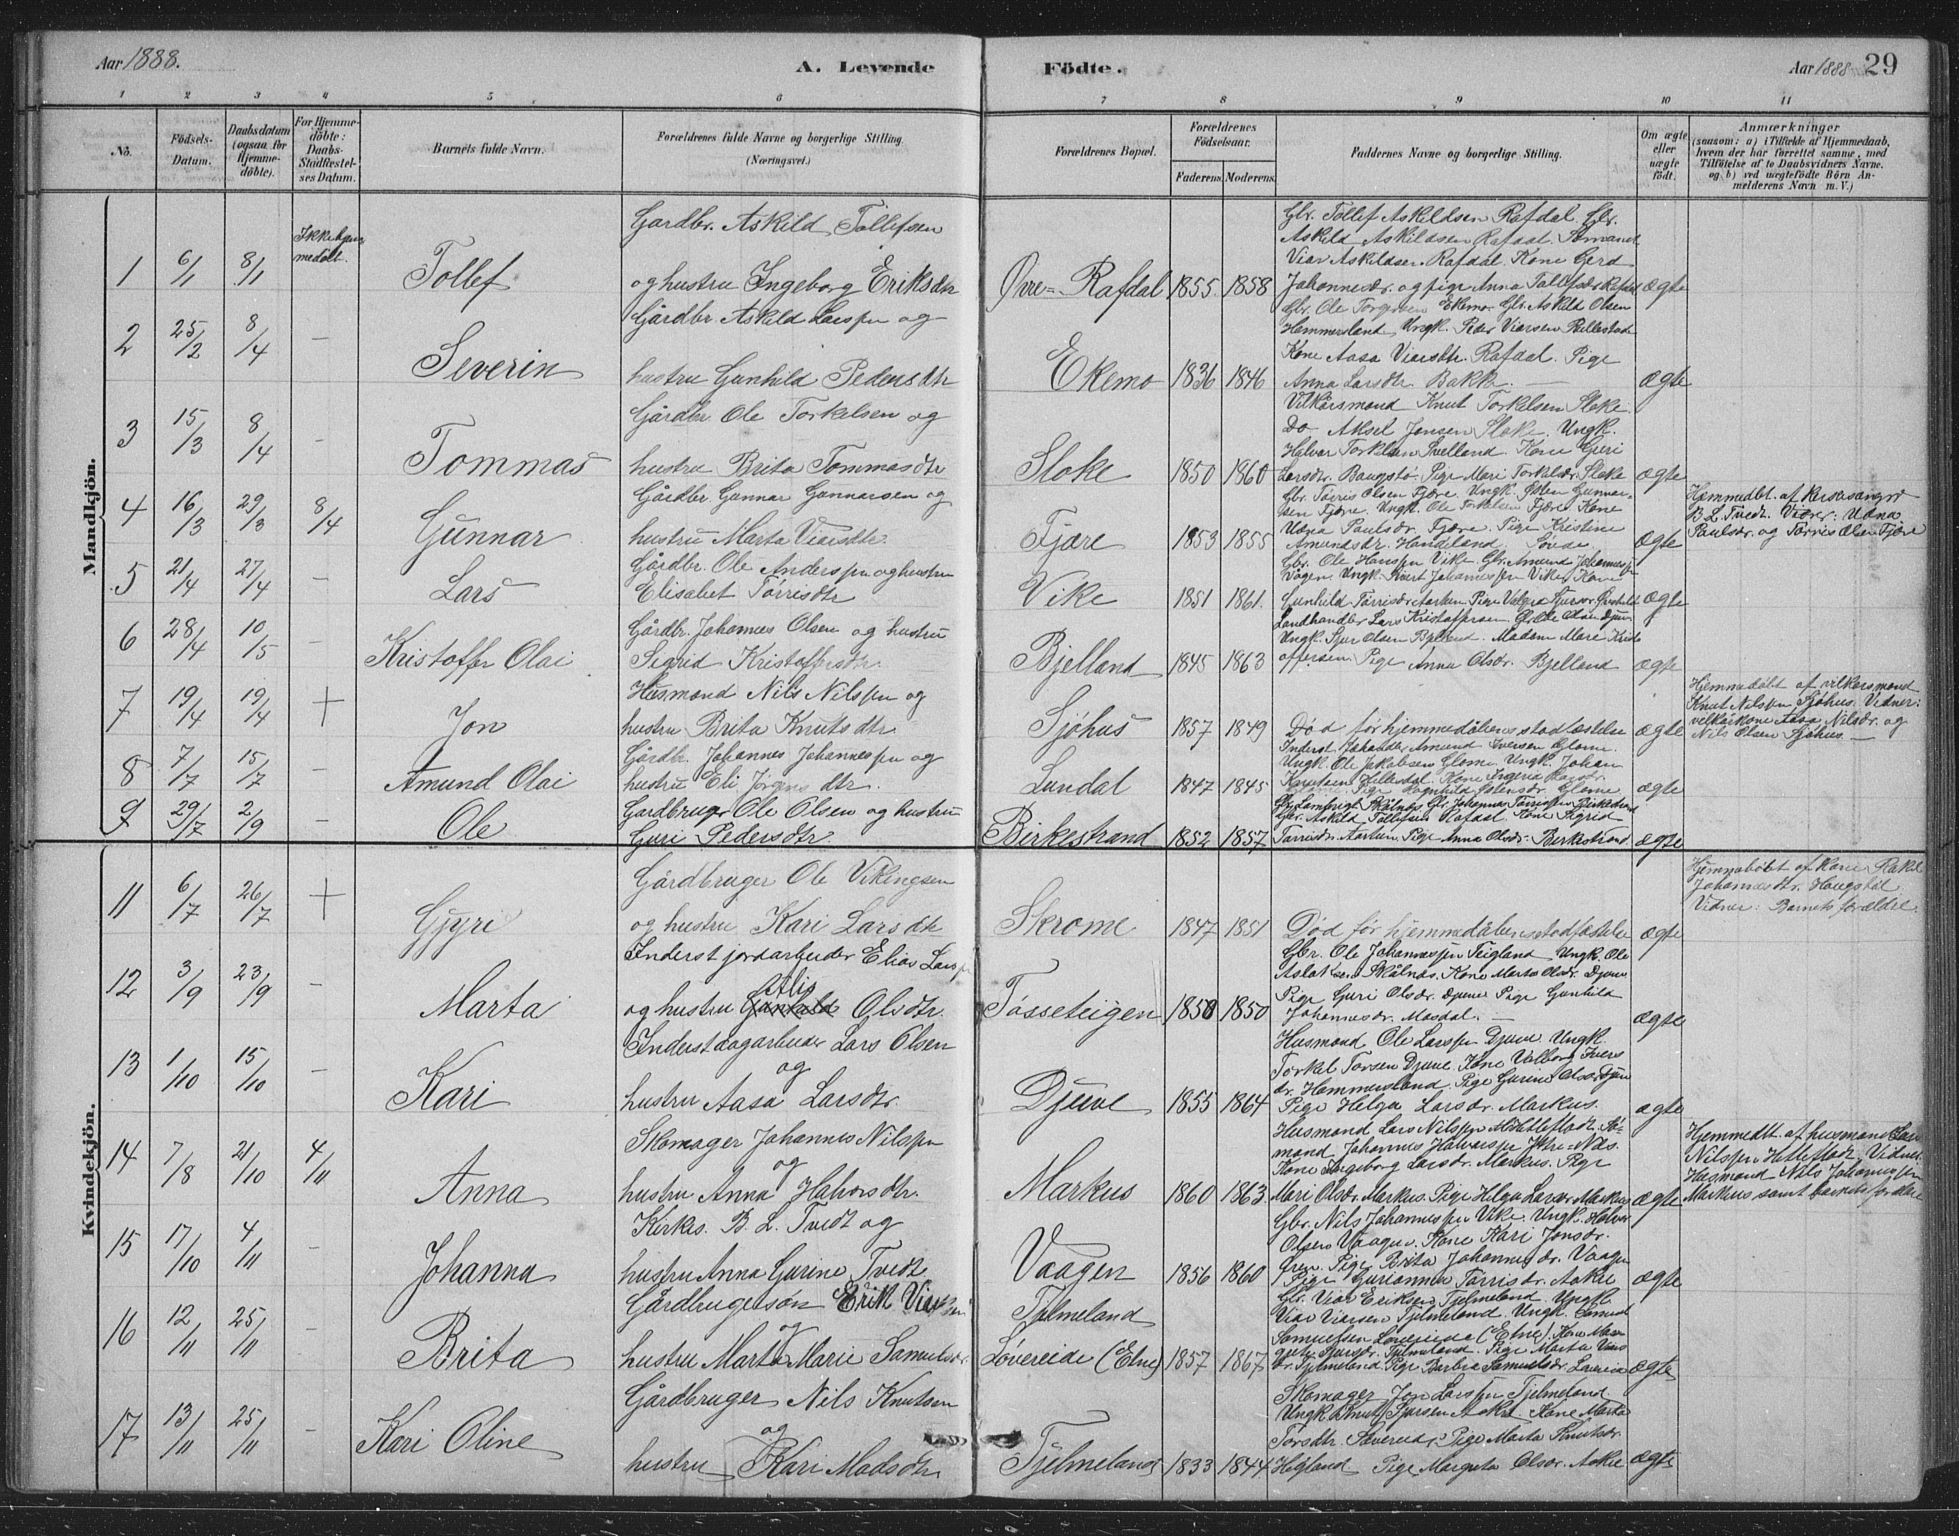 Aar 1888.
A. Levende Födte.
Aar 1888 29
1 2 3 4 5 6 7 8 9 10 11
No.
Födsels-Datum.
Daabsdatum (ogsaa for Hjemmedöbte).
For Hjemmedöbte: Daabs-Stadfestelses Datum.
Barnets fulde Navn.
Forældrenes fulde Navne og borgerlige Stilling. (Næringsvei.)
Forældrenes Bopæl.
Forældrenes Födselsaar.
Faderens. Moderens.
Faddernes Navne og borgerlige Stilling.
Om ægte eller uægte födt.
Anmærkninger
(saasom: a) i Tilfælde af Hjemmedaab, hvem der har forrettet samme, med Tilföielse af to Daabsvidners Navne. og b) ved uægtefödte Börn Anmelderens Navn m. V.)
Mandkjön.
1 6/1 8/1 Ikke hjemmedøbt. Tollef
Gardbr. Askild Tollefsen
og hustru Ingeborg Eriksdtr
Øvre-Rafdal 1855 1858
Gbr. Tollef Askildsen Rafdal. Gbr.
Askild Askildsen Rafdal. Sømand
Viar Askildsen Rafdal. Kone Gerd
Johannesdr. og pige Anna Tollefsdr. Rafdal ægte
2 25/2 8/4 - Severin
Gårdbr. Askild Larspn og
hustru Gunhild Pedersdtr
Ekemo 1836 1846
Gbr. Ole Torgersen Ekemo. Gbr. Askild Olsen
Hammersland, Ungk. Peder Viarsen Rullestad
Kone Aasa Viarsdtr. Rafdal. Pige
Anna Larsdtr. Bakke. — ægte
3 15/3 8/4 - Tommas
Gårdbr Ole Torkelsen og
hustru Brita Tommasdtr
Sloke 1850 1860
Vilkårsmand Knut Torkelsen Sloke.
Do Aksel Jonsen Sloke. Ungk.
Halvor Torkelsen Svelland. Kone Geri
Larsdtr. Baugstø. Pige Mari Torkelsdr. Sloke ægte
4 16/3 29/3 8/4 Gunnar
Gårdbr. Gunnar Gunnarsen og
hustru Marta Viarsdtr
Fjære 1853 1855
Gbr. Tørris Olsen Fjære. Ungk. Østen Gunnarsen
Fjære. Ungk. Ole Torkelsen Fjære. Kone
Udna Paulsdr. Fjære. Pige Kristine
Amundsdr. Handeland. Søvde. ægte
Hjemmedbt. af kirkesanger
B. L. Tvedt. Vidner: Udna
Paulsdr. og Tørris Olsen Fjære
5 21/4 27/4 - Lars
Gårdbr. Ole Anderspn og hustru
Elisabet Tørrisdtr
Vike 1851 1861.
Gbr. Ole Hanspn Vike. Gbr. Amund Johannespn
Vågen. Ungk. Sivert Johannespn Vike. Kone
Gunhild Tørrisdr. Aarken. Pige Valgjer ægte
6 28/4 10/5 - Kristoffer Olai
Gårdbr. Johannes Olsen og hustru
Sigrid Kristoffersdtr
Bjelland 1845 1863
Landhandler Lars Kristoffersen. Gbr. Ole Olsen Djuve
Ungk. Sjur Olsen Bjelland. Madam Mari Kristoffersen.
Pige Anna Olsdr. Bjelland ægte
7 19/4 19/4 + Jon
Husmand Nils Nilspn og
hustru Brita Knutsdtr.
Sjøhus 1857 1849
Død før hjemmedåbens stadfæstelse ægte
Hjemmedøbt af vilkårsmand
Knut Nilspn Sjøhus. Vidner:
vilkårkone Aasa Nilsdr. og
Nils Olsen Sjøhus. —
8 7/7 15/7 - Amund Olai
Gårdbr. Johannes Johannespn og
hustru Eli Jørgensdtr.
Lundal 1847 1845
Inderst. Johannes Amund Iversen Glome.
Ungk. Ole Jakobsen Glome. Ungk. Johan
Knutsen Hellesdal. Kone Ingeria
Pige Ragnhild Østensdr. Glome ægte
9 29/7 2/9 - Ole
Gårdbruger Ole Olsen og hustru
Guri Pedersdtr.
Birkestrand 1852 1857
Gbr. Lambrigt Skålnes. Gbr. Johannes Tørrispn Birkestrand
Gbr. Askild Tollefsen Rafdal. Kone Sigrid
Tørrisdr. Aartun. Pige Anna Olsdr. Birkestrand ægte
Kvindekjön.
11 6/7 26/7 + Gjyri
Gårdbruger Ole Vikingsen
og hustru Kari Larsdtr
Skrome 1847 1851
Død før hjemmedåbens stadfæstelse ægte
Hjemmedøbt af kone Rakel
Johannesdtr. Haugstøl.
Vidner: Barnets forældre.
12 3/9 23/9 - Marta
Inderst jordarbeider Elias Larspn
og hustru Gunhild Alis Olsdtr.
Tøsseteigen 1850 1850
Gbr. Ole Johannespn Teigland. Ungk. Ole
Aslaksen Skålnes. Kone Marta Olsdr. Djuve
Pige Guri Olsdr. Djuve. Pige Gunhild
Johannesdr. Mosdal. — ægte
13 1/10 15/10 - Kari
Inderst dagarbeider Lars Olsen
og
hustru Aasa Larsdtr.
Djuve 1855 1864
Husmand Ole Larspn Djuve. Ungk.
Torkel Torsen Djuve. Kone Valborg Iversdr.
Hammersland. Pige Gurine Olsdr. Djuve
Pige Helga Larsdr. Markus. ægte
14 7/8 21/10 4/11 Anna
Skomager Johannes Nilspn
og
hustru Anna Halvorsdtr.
Markus 1860 1863
Husmand Lars Nilspn Milletestad.
Johannes Halvorspn Ytre-Næs.
Kone Ingeborg Larsdr. Markus. Pige
Mari Olsdr. Markus. Pige Helga Larsdr. Markus ægte
Hjemmedt. af husmand Lars
Nilspn Hellestad. Vidner:
Husmand Nils Johannespn
Markus samt barnets forældre
15 17/10 4/11 - Johanna
Kirkes. B. L. Tvedt og
hustru Anna Gurine Tvedt
Vaagen 1856 1860
Gbr. Nils Johannespn Vike. Ungk. Halvor
Olsen Vaagen. Kone Kari Jonsdr.
Pige Brita Johannesdr. Vaagen
Pige Gurianna Tørrisdr. Aakre ægte
16 12/11 25/11 - Brita
Gårdbrugersøn Erik Viarsen
og
hustru Marta Marie Samuelsdr.
Tjelmeland
Løvereide (Etne) 1857 1867
Gbr. Viar Eriksen Tjelmeland. Ungk.
Viar Viarsen Tjelmeland. Ungk. Samuel
Samuelsen Løvereide (Etne). Kone Margreta
Sjursdr. Tjelmeland. Pige Marta Viarsdr.
Tjelmeland. Pige Barbra Samuelsdr. Løvereide ægte
17 13/11 25/11 - Kari Oline
Gårdbruger Nils Knutsen
og
hustru Kari Madsdtr
Tjelmeland 1833 1844
Skomager Jon Larspn Tjelmeland.
Ungk. Knut Sjursen Aakre. Kone Marta
Torsdtr. Løvereide. Pige Marta Knutsdr.
Høgland. Pige Margreta Olsdr. Aakre ægte